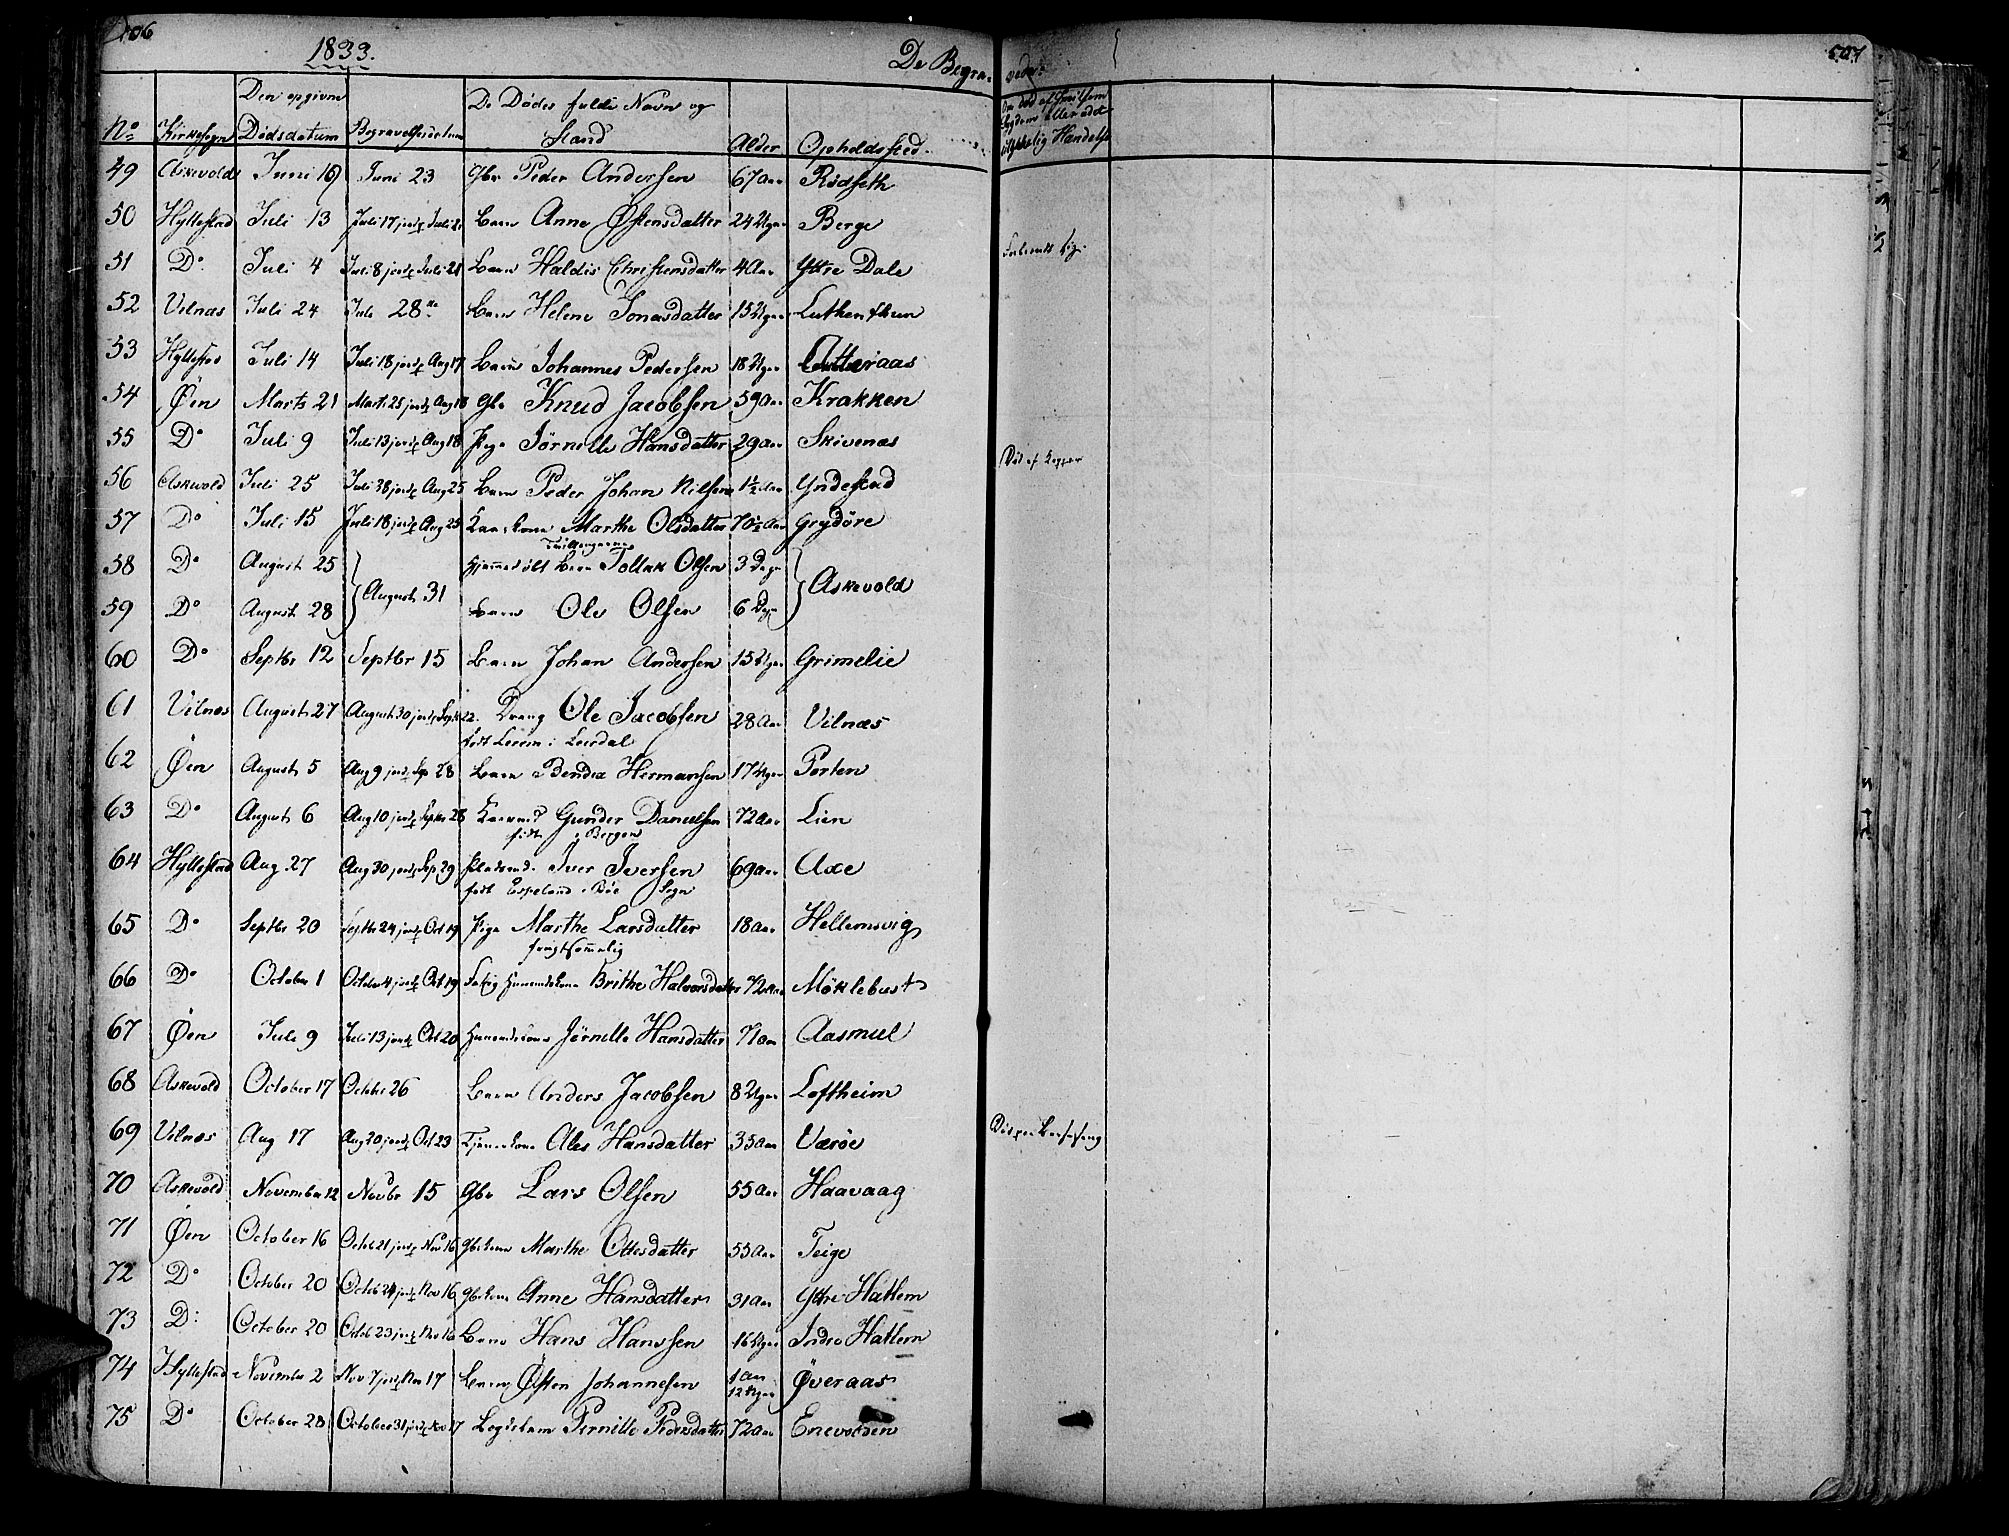 506
1833.
De Begra-
vede.
507
No
Kirkesogn
Den opgivne Dødsdatum
Begravelsesdatum
De Dødes fulde Navn og Stand
Alder
Opholdssted
49 Askevold Juni 19 Juni 23 Gbr Peder Andersen 67 Aar Rödseth
50 Hyllestad Juli 13 Juli 17 jordf Juli 21 Barn Anne Østensdatter 24 Uger Berge
51 Do Juli 4 Juli 8 jordf Juli 21 Barn Haldis Christensdatter 4 Aar Yttre Dale
52 Vilnæs Juli 24 Juli 28 Barn Helene Jonasdatter 15 Uger
53 Hyllestad Juli 14 Juli 18 jordf Aug 17 Barn Johannes Pedersen 18 Uger
54 Øen Marts 21 Marts 25 jordf Aug 18 Gbr Knud Jacobsen 59 Aar Krakken
55 Do Juli 9 Juli 13 jordf Aug 18 Pige Jørnille Hansdatter 29 Aar Skivenæs
Död af Kopper
56 Askevold Juli 25 Juli 28 jordf Aug 25 Barn Peder Johan Nilsen 1½ Aar Yndestad
57 Do Juli 15 Juli 18 jordf Aug 25 Marthe Olsdatter 70½ Aar Grydöre
Tvillingerne
58 Do August 25 August 31 Hjemmedöbt Barn Tollak Olsen 3 Dage Askevold
59 Do August 28 Barn Ole Olsen 6 Dage
60 Do Septbr 12 Septbr 15 Barn Johan Andersen 15 Uger Grimelie
61 Vilnæs August 27 August 30 jordf Sept 22. Dreng Ole Jacobsen 28 Aar Vilnæs
födt i Leirdal
62 Øen August 5 Aug 9 jordf Sep 28 Barn Bendix Hermansen 17 Uger Porten
63 Do August 6 Aug 10 jordf Septbr 28 Gunder Danielsen 72 Aar Lien
födt i Bergen
64 Hyllestad Aug 27 Aug 30 jordf Sep 29 Iver Iversen 69 Aar Axe
födt Espeland Sogn
65 Do Septbr 20 Septbr 24 jordf Oct 19 Pige Marthe Larsdatter 18 Aar Hellemsvig
frugtsommelig
66 Do October 1 October 4 jordf Oct 19 Brithe Halvorsdatter 72 Aar Möklebust
67 Øen Juli 9 Juli 13 jordf Oct 20 Jørnille Hansdatter 71 Aar Aasmul
68 Askevold October 17 October 26 Barn Anders Jacobsen 8 Uger Loftheim
69 Vilnæs Aug 17 Aug 20 jordf Oct 23 Ales Hansdatter 35 Aar Værøe
70 Askevold November 12 Novbr 15 Gbr Lars Olsen 55 Aar Haavaag
71 Øen October 16 Octob 21 jordf Nov 16 Gbrkone Marthe Ottesdatter 55 Aar Teige
72 Do October 20 Octob 24 jordf Nov 16 Gbrkone Anne Hansdatter 31 Aar Yttre Hatlem
73 Do October 20 Octob 23 jordf Nov 16 Barn Hans Hanssen 16 Uger Indre Hatlem
74 Hyllestad November 2 Nov 7 jordf Nov 17 Barn Østen Johannesen 1 Aar 12 Uger Øveraas
75 Do October 28 October 31 jordf Nov 17 Pernille Pedersdatter 72 Aar Enevolden